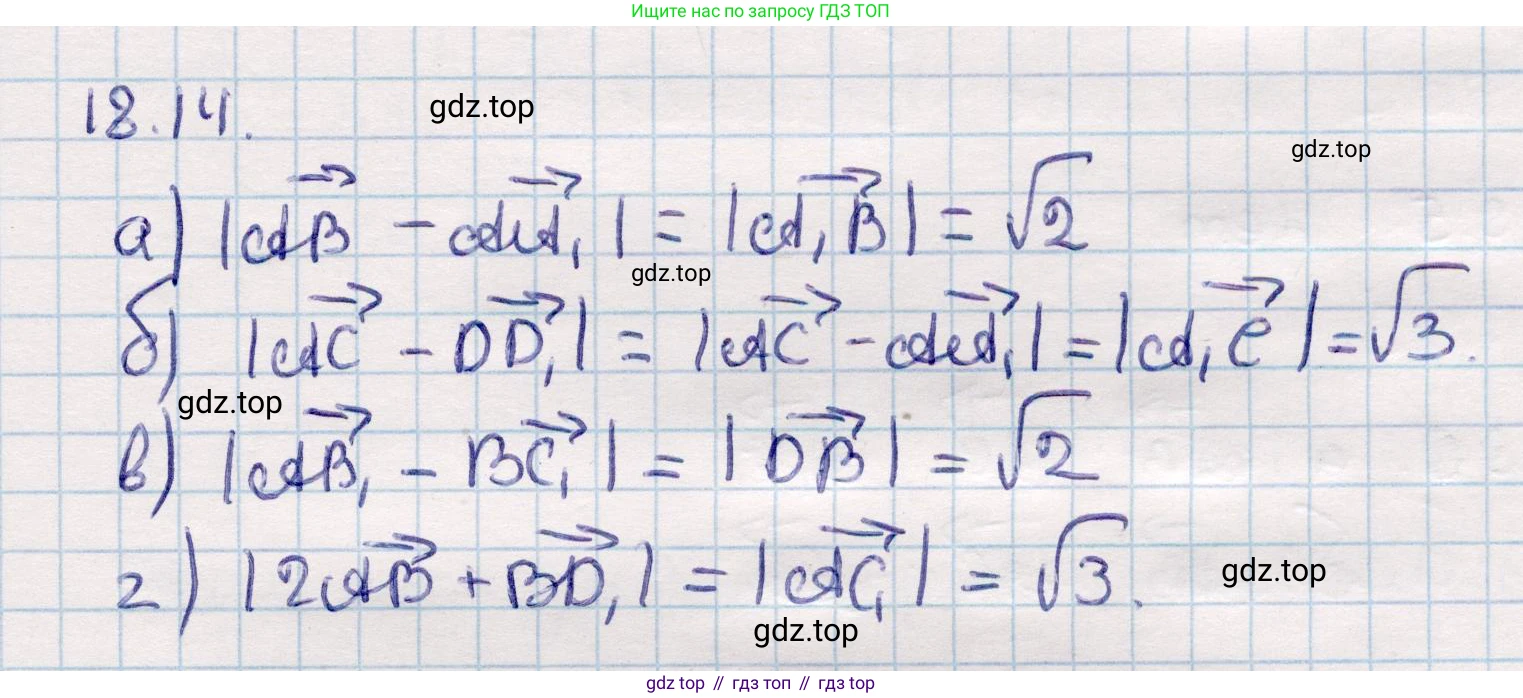 Ищите нас по запросу ГДЗ ТОП
18.14.
gdz.top
gdz.top
а) |AB⃗ - AA₁⃗| = |A₁B⃗| = √2
gdz.top
б) |AC⃗ - DD₁⃗| = |AC⃗ - AA₁⃗| = |A₁C⃗| = √3.
gdz.top
в) |AB₁⃗ - BC₁⃗| = |DB⃗| = √2
г) |2AB⃗ + BD₁⃗| = |AC₁⃗| = √3.
gdz.top
gdz.top
gdz top // гдз топ // гдз top